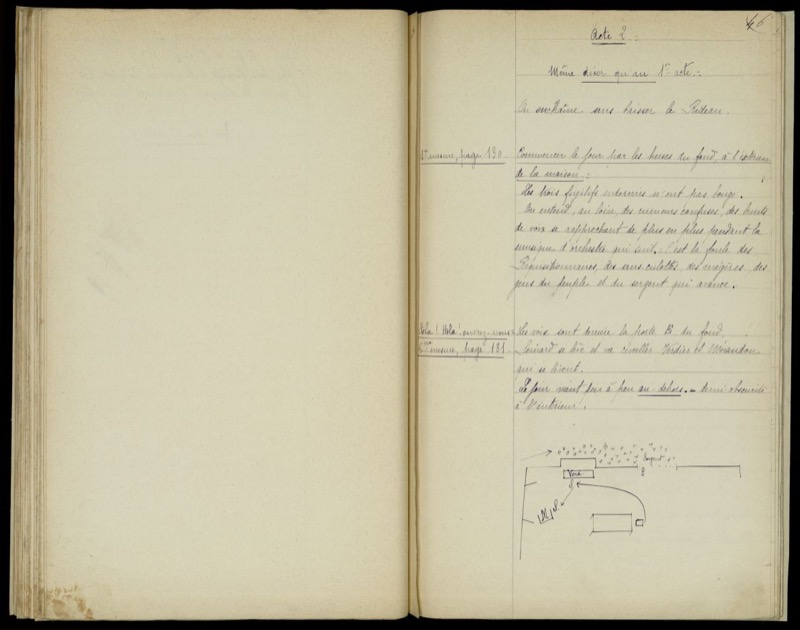 46
Acte 2 =
Même décor qu'au 1er acte. =
On enchaîne sans baisser le Rideau.
1re mesure, page 130.
Commencer le jour par les herses du fond, à l'extérieur
de la maison =
Les trois fugitifs endormis n'ont pas bougé.
On entend, au loin, des rumeurs confuses, des bruits
de voix se rapprochant de plus en plus pendant la
musique d'orchestre qui suit. C'est la foule des
Réquisitionnaires, des sans culottes, des mégères, des
gens du peuple et du sergent qui avance.
Hola! Hola! ouvrez-nous
mesure, page 131.
Les voix sont derrière la porte B du fond.
se lève et va réveiller Verdier et
qui se lèvent.
Le jour vient peu à peu au dehors. = demi obscurité
à l'intérieur.
Sergent
B